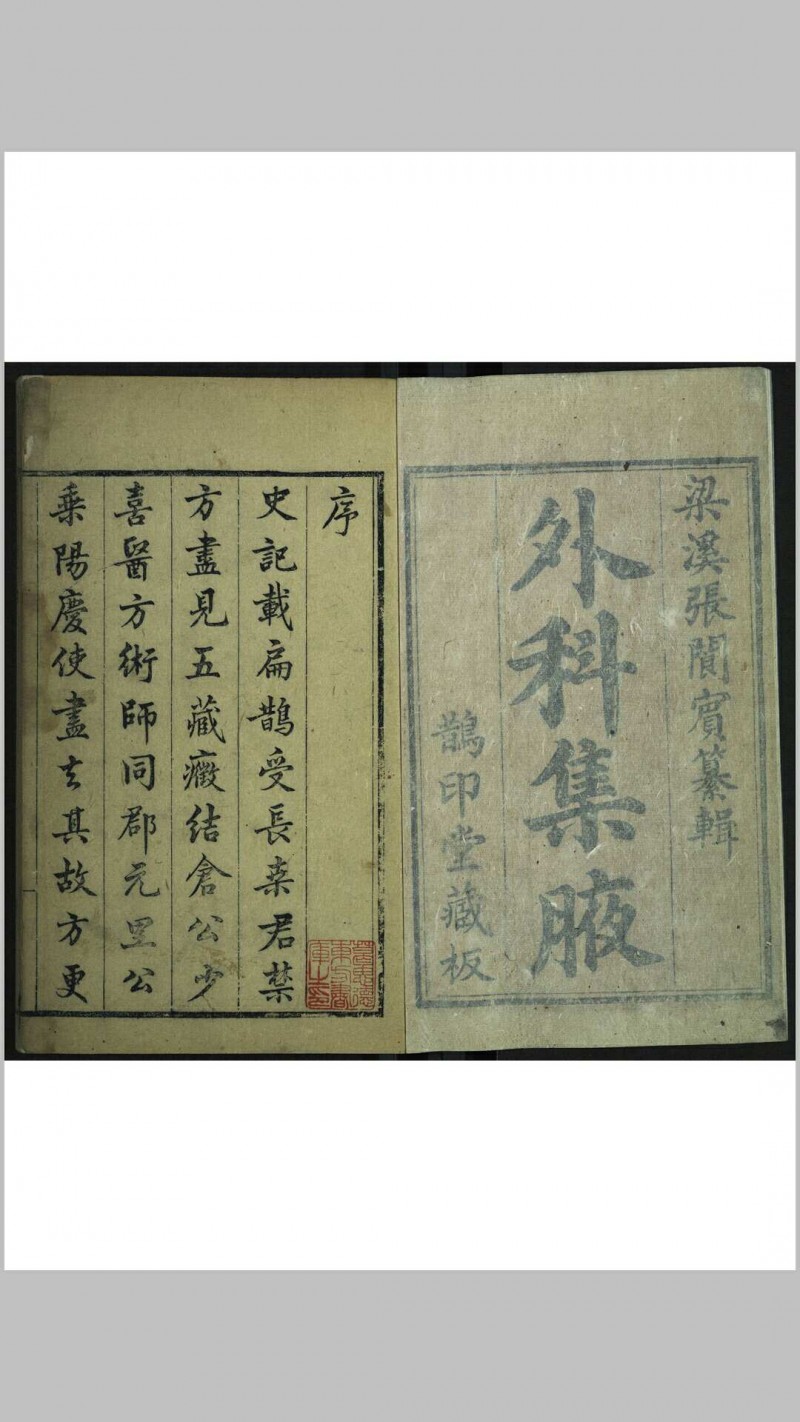 梁溪張閬賓纂輯
外科集腋
鵲印堂藏板
序
史記載扁鵲受長桑君禁
方盡見五藏癥結倉公少
喜醫方術師同郡元里公
乗陽慶使盡去其故方更